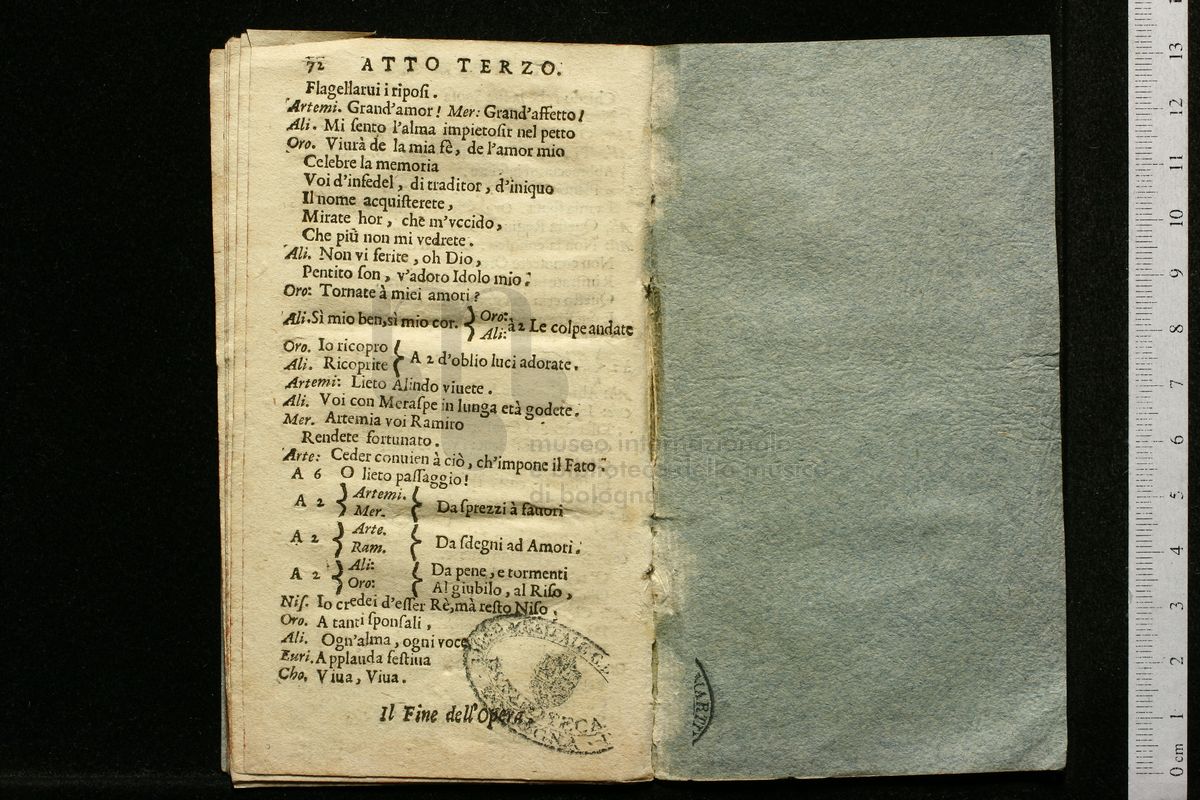 72 ATTO TERZO.
Flagellarui i riposi.
Artemi. Grand'amor! Mer: Grand'affetto!
Ali. Mi sento l'alma impietosir nel petto
Oro. Viurà de la mia fè, de l'amor mio
Celebre la memoria
Voi d'infedel, di traditor, d'iniquo
Il nome acquisterete,
Mirate hor, che m'vccido,
Che più non mi vedrete.
Ali. Non vi ferite, oh Dio,
Pentito son, v'adoro Idolo mio.
Oro: Tornate à miei amori?
Ali. Sì mio ben, sì mio cor. } Oro: Ali: à 2 Le colpe andate
Oro. Io ricopro
Ali. Ricoprite { A 2 d'oblio luci adorate.
Artemi: Lieto Alindo viuete.
Ali. Voi con Meraspe in lunga età godete.
Mer. Artemia voi Ramiro
Rendete fortunato.
Arte: Ceder conuien à ciò, ch'impone il Fato.
A 6 O lieto passaggio!
A 2 } Artemi. Mer. { Da sprezzi à fauori
A 2 } Arte. Ram. { Da sdegni ad Amori.
A 2 } Ali: Oro: { Da pene, e tormenti
Al giubilo, al Riso,
Nis. Io credei d'esser Rè, mà resto Niso.
Oro. A tanti sponsali,
Ali. Ogn'alma, ogni voce
Euri. Applauda festiua
Cho. Viua, Viua.
Il Fine dell'Opera.
museo internazionale
e biblioteca della musica
di bologna
0 cm 1 2 3 4 5 6 7 8 9 10 11 12 13